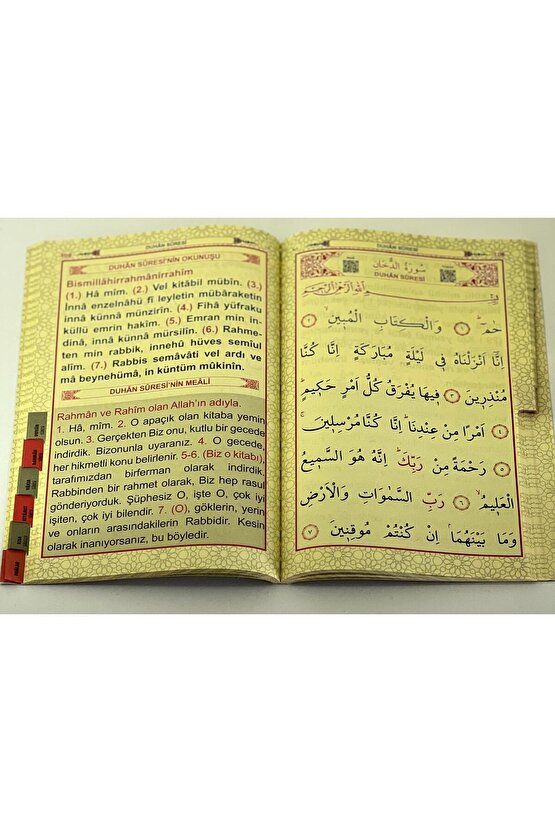 DUHÂN SÛRESİ
DUHÂN SÛRESİ'NİN OKUNUŞU
Bismillâhirrahmânirrahîm
(1.) Hâ mîm. (2.) Vel kitâbil mübîn. (3.)
İnnâ enzelnâhü fî leyletin mübâraketin
innâ künnâ münzirîn. (4.) Fîhâ yüfraku
küllü emrin hakîm. (5.) Emran min in-
dinâ, innâ künnâ mürsilîn. (6.) Rahme-
ten min rabbik, innehû hüves semîul
alîm. (7.) Rabbis semâvâti vel ardı ve
mâ beynehümâ, in küntüm mûkinîn.
DUHÂN SÛRESİ'NİN MEÂLİ
Rahmân ve Rahîm olan Allah'ın adıyla.
1. Hâ, mîm. 2. O apaçık olan kitaba yemin
olsun. 3. Gerçekten Biz onu, kutlu bir gecede
indirdik. Bizonunla uyaranız. 4. O gecede,
her hikmetli konu belirlenir. 5-6. (Biz o kitabı),
tarafımızdan birferman olarak indirdik.
Rabbinden bir rahmet olarak, Biz hep rasul
gönderiyorduk. Şüphesiz O, işte O, çok iyi
işiten, çok iyi bilendir. 7. (O), göklerin, yerin
ve onların arasındakilerin Rabbidir. Kesin
olarak inanıyorsanız, bu böyledir.
DUHÂN SÛRESİ
سُورَةُ الدُّخَانِ
DUHÂN SÛRESİ
بِسْمِ اللّٰهِ الرَّحْمٰنِ الرَّحِيمِ
حٰمۤ ﴿١﴾ وَالْكِتَابِ الْمُبِينِ ﴿٢﴾
اِنَّٓا اَنْزَلْنَاهُ فِي لَيْلَةٍ مُبَارَكَةٍ اِنَّا كُنَّا
مُنْذِرِينَ ﴿٣﴾ فِيهَا يُفْرَقُ كُلُّ اَمْرٍ حَكِيمٍ
﴿٤﴾ اَمْرًا مِنْ عِنْدِنَا اِنَّا كُنَّا مُرْسِلِينَ
﴿٥﴾ رَحْمَةً مِنْ رَبِّكَ اِنَّهُ هُوَ السَّمِيعُ
الْعَلِيمُ ﴿٦﴾ رَبِّ السَّمٰوَاتِ وَالْاَرْضِ
وَمَا بَيْنَهُمَا اِنْ كُنْتُمْ مُوقِنِينَ ﴿٧﴾